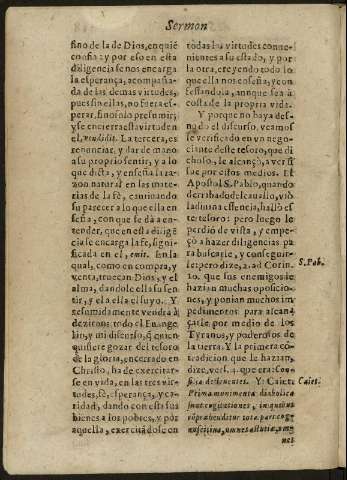 Sermon
sino de la de Dios, en quiē
confia: y por eso en esta
diligencia se nos encarga
la esperança, acompaña-
da de las demas virtudes,
pues sin ellas, no fuera es-
perar, sino solo presumir;
y se encierra esta virtud en
el, vendidit. La tercera, es
renunciar, y dar de mano
a su proprio sentir, y a lo
que dicta, y enseña la ra-
zon natural en las mate-
rias de la fè, cautiuando
su parecer a lo que ella en
seña, con que se dà a en-
tender, que en esta diligē
cia se encarga la fe, signi-
ficada en el, emit. En la
qual, como en compra, y
venta, truecan Dios, y el
alma, dandole ella su sen
tir, y el a ella el suyo. Y
resumidamente vendrà à
dezirnos todo el Euange-
lio, y mi discurso, q̄ quien
quisiere gozar del tesoro
de la gloria, encerrado en
Christo, ha de exercitar-
se en vida, en las tres vir-
tudes, fè, esperança, y ca-
ridad, dando con esta sus
bienes a los pobres, y por
aquella, exercitādose en
todas las virtudes conue-
nientes a su estado, y por
la otra, creyendo todo lo
que ella nos enseña, y con
fessandola, aunque sea à
costa de la propria vida.
Y porque no haya des-
nudo el discurso, veamos
se verificado en vn nego-
ciante deste tesoro, que di
choso, le alcançò, a ver si
fue por estos medios. El
Apostol S. Pablo, quando
derribado de le cauallo, vió
la diuina essencia, hallò es
te tesoro: pero luego le
perdio de vista, y empe-
çò a hazer diligencias para
buscarle, y conseguir-
le: pero dize, 2. ad Corin.
10. que sus enemigos le
hazian muchas oposicio-
nes, y ponian muchos im
pedimentos para alcan-
çarle, por medio de los
Tyranos, y poderosos de
la tierra. Y la primera có-
tradicion que le hazian,
dize, vers. 4. que era: Con-
silia destruentes. Y: Caiet:
Prima munimenta diabolica
sunt cogitationes, in quibus
cōpraehenditur tota pars cog-
noscitiua, omnes astutiae, om-
nes
S. Pab.
Caiet.